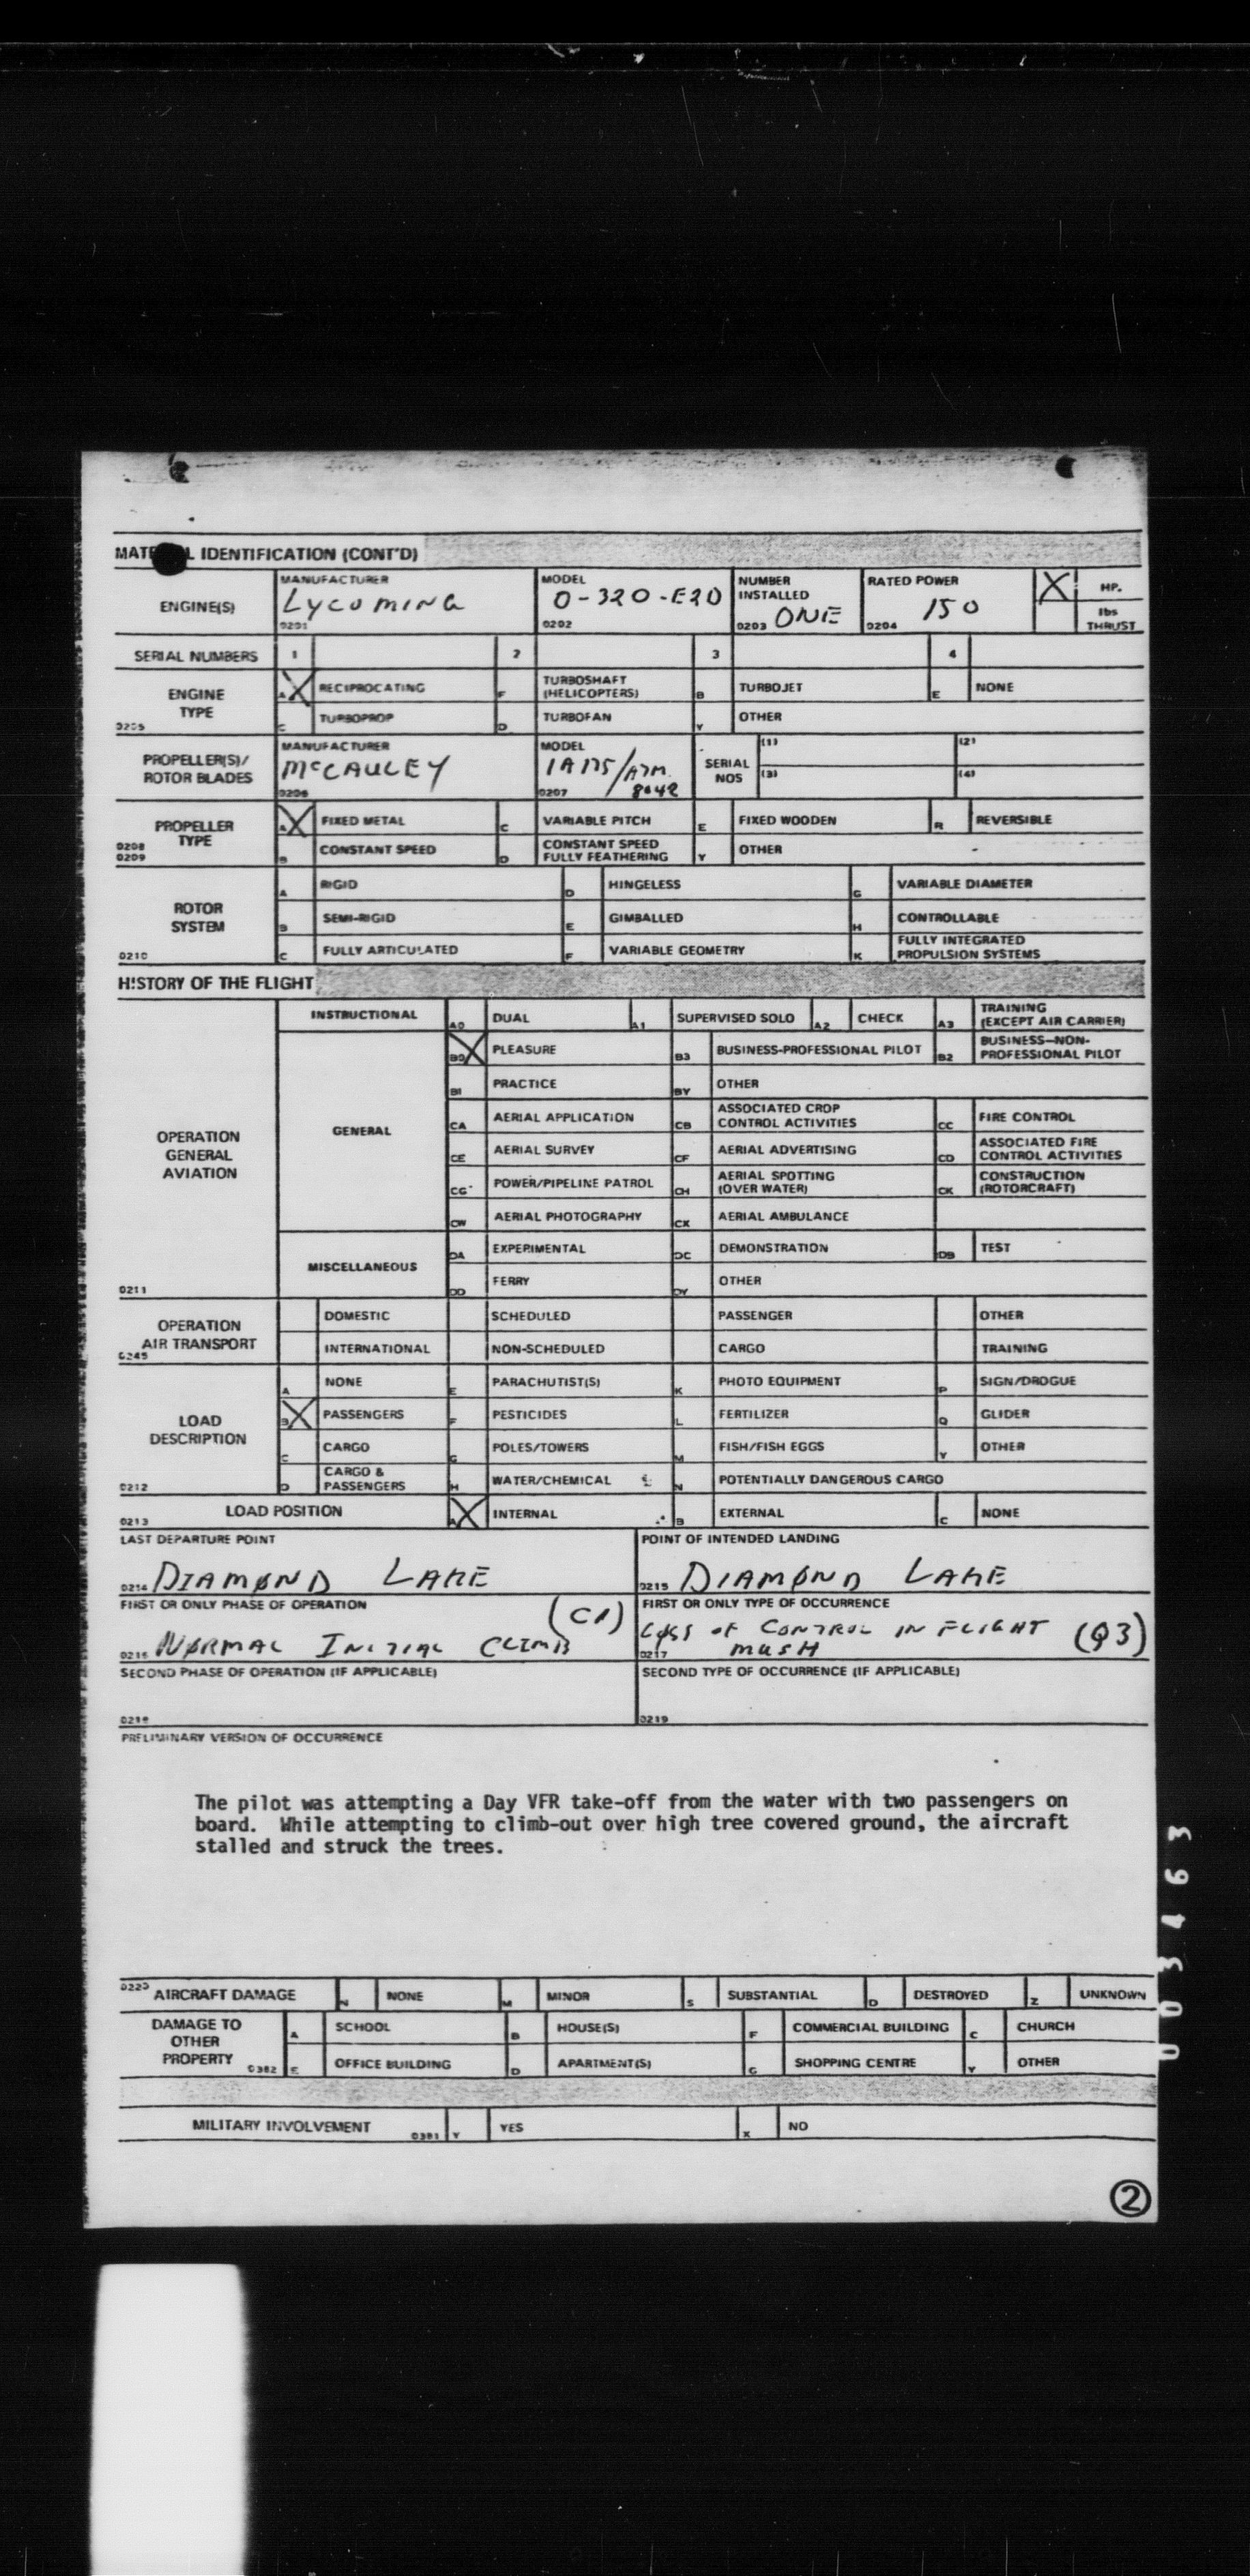 MATE L IDENTIFICATION (CONT'D)
ENGINE(S) MANUFACTURER LYCOMING 0201 MODEL O-320-E2D 0202 NUMBER INSTALLED ONE 0203 RATED POWER 150 0204 X HP. lbs THRUST
SERIAL NUMBERS 1 2 3 4
ENGINE TYPE 0205 A X RECIPROCATING F TURBOSHAFT (HELICOPTERS) B TURBOJET E NONE
C TURBOPROP D TURBOFAN Y OTHER
PROPELLER(S)/ ROTOR BLADES MANUFACTURER McCAULEY 0206 MODEL 1A175/ATM 8042 0207 SERIAL NOS (1) (2)
(3) (4)
PROPELLER TYPE 0208 0209 A X FIXED METAL C VARIABLE PITCH E FIXED WOODEN R REVERSIBLE
B CONSTANT SPEED D CONSTANT SPEED FULLY FEATHERING Y OTHER
ROTOR SYSTEM 0210 A RIGID D HINGELESS G VARIABLE DIAMETER
B SEMI-RIGID E GIMBALLED H CONTROLLABLE
C FULLY ARTICULATED F VARIABLE GEOMETRY K FULLY INTEGRATED PROPULSION SYSTEMS
HISTORY OF THE FLIGHT
OPERATION GENERAL AVIATION 0211
INSTRUCTIONAL A0 DUAL A1 SUPERVISED SOLO A2 CHECK A3 TRAINING (EXCEPT AIR CARRIER)
GENERAL B0 X PLEASURE B3 BUSINESS-PROFESSIONAL PILOT B2 BUSINESS-NON-PROFESSIONAL PILOT
B1 PRACTICE BY OTHER
CA AERIAL APPLICATION CB ASSOCIATED CROP CONTROL ACTIVITIES CC FIRE CONTROL
CE AERIAL SURVEY CF AERIAL ADVERTISING CD ASSOCIATED FIRE CONTROL ACTIVITIES
CG POWER/PIPELINE PATROL CH AERIAL SPOTTING (OVER WATER) CK CONSTRUCTION (ROTORCRAFT)
CW AERIAL PHOTOGRAPHY CX AERIAL AMBULANCE
MISCELLANEOUS DA EXPERIMENTAL DC DEMONSTRATION DB TEST
DD FERRY DY OTHER
OPERATION AIR TRANSPORT 0245 DOMESTIC SCHEDULED PASSENGER OTHER
INTERNATIONAL NON-SCHEDULED CARGO TRAINING
LOAD DESCRIPTION 0212 A NONE E PARACHUTIST(S) K PHOTO EQUIPMENT P SIGN/DROGUE
B X PASSENGERS F PESTICIDES L FERTILIZER Q GLIDER
C CARGO G POLES/TOWERS M FISH/FISH EGGS Y OTHER
D CARGO & PASSENGERS H WATER/CHEMICAL N POTENTIALLY DANGEROUS CARGO
LOAD POSITION 0213 A X INTERNAL B EXTERNAL C NONE
LAST DEPARTURE POINT POINT OF INTENDED LANDING
0214 DIAMOND LAKE 0215 DIAMOND LAKE
FIRST OR ONLY PHASE OF OPERATION (C1) FIRST OR ONLY TYPE OF OCCURRENCE
0216 NORMAL INITIAL CLIMB 0217 LOSS OF CONTROL IN FLIGHT MUSH (Q3)
SECOND PHASE OF OPERATION (IF APPLICABLE) SECOND TYPE OF OCCURRENCE (IF APPLICABLE)
0218 0219
PRELIMINARY VERSION OF OCCURRENCE
The pilot was attempting a Day VFR take-off from the water with two passengers on
board. While attempting to climb-out over high tree covered ground, the aircraft
stalled and struck the trees.
AIRCRAFT DAMAGE N NONE M MINOR S SUBSTANTIAL D DESTROYED Z UNKNOWN
DAMAGE TO OTHER PROPERTY 0382 A SCHOOL B HOUSE(S) F COMMERCIAL BUILDING C CHURCH
E OFFICE BUILDING D APARTMENT(S) G SHOPPING CENTRE Y OTHER
MILITARY INVOLVEMENT 0381 Y YES X NO
2
003463